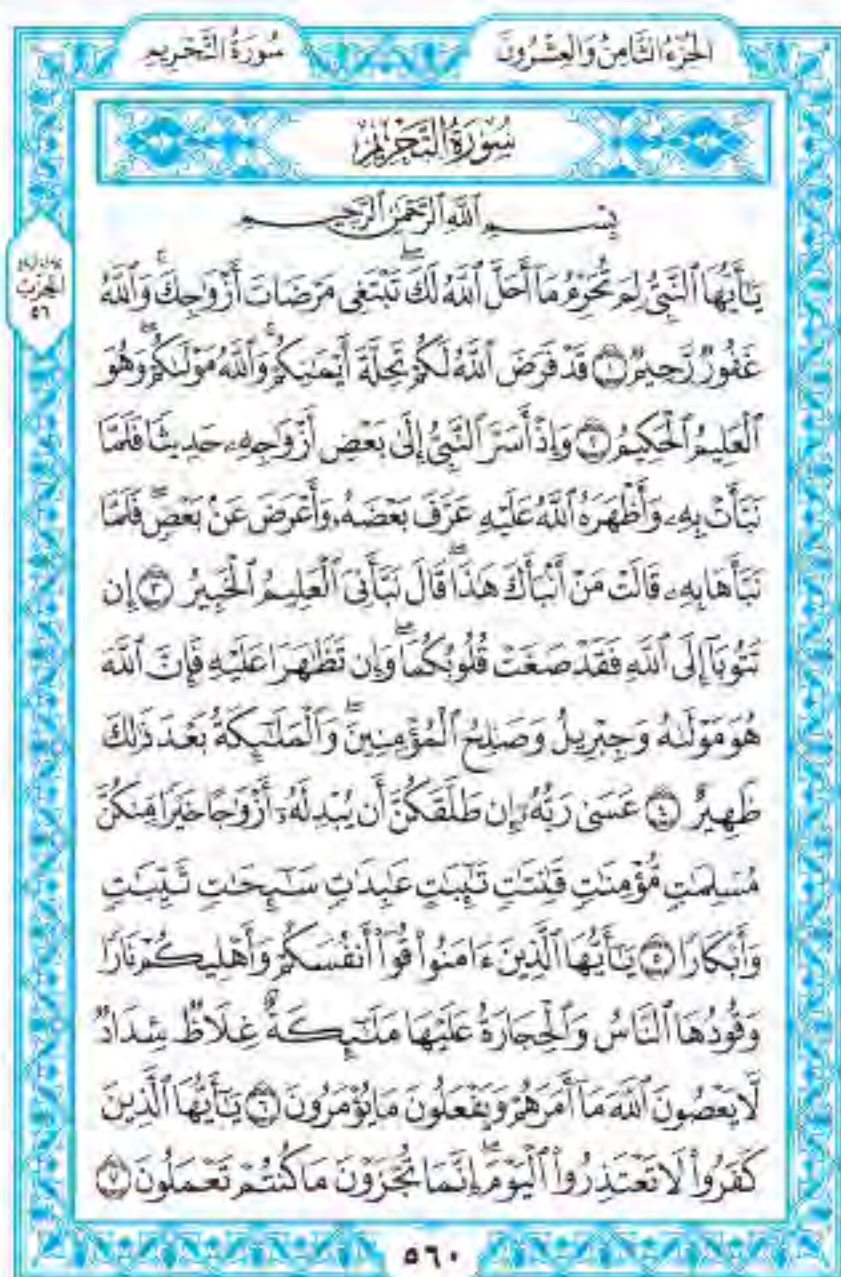 سُورَةُ التَّحْرِيمِ
الجُزْءُ الثَّامِنُ وَالعِشْرُونَ
سُورَةُ التَّحْرِيمِ
بِسْمِ ٱللَّهِ ٱلرَّحْمَٰنِ ٱلرَّحِيمِ
الحِزْبُ
٥٦
يَٰٓأَيُّهَا ٱلنَّبِىُّ لِمَ تُحَرِّمُ مَآ أَحَلَّ ٱللَّهُ لَكَۖ تَبْتَغِى مَرْضَاتَ أَزْوَٰجِكَۚ وَٱللَّهُ
غَفُورٌ رَّحِيمٌ ١ قَدْ فَرَضَ ٱللَّهُ لَكُمْ تَحِلَّةَ أَيْمَٰنِكُمْۚ وَٱللَّهُ مَوْلَىٰكُمْۖ وَهُوَ
ٱلْعَلِيمُ ٱلْحَكِيمُ ٢ وَإِذْ أَسَرَّ ٱلنَّبِىُّ إِلَىٰ بَعْضِ أَزْوَٰجِهِۦ حَدِيثًا فَلَمَّا
نَبَّأَتْ بِهِۦ وَأَظْهَرَهُ ٱللَّهُ عَلَيْهِ عَرَّفَ بَعْضَهُۥ وَأَعْرَضَ عَنۢ بَعْضٍۖ فَلَمَّا
نَبَّأَهَا بِهِۦ قَالَتْ مَنْ أَنۢبَأَكَ هَٰذَاۖ قَالَ نَبَّأَنِىَ ٱلْعَلِيمُ ٱلْخَبِيرُ ٣ إِن
تَتُوبَآ إِلَى ٱللَّهِ فَقَدْ صَغَتْ قُلُوبُكُمَاۖ وَإِن تَظَٰهَرَا عَلَيْهِ فَإِنَّ ٱللَّهَ
هُوَ مَوْلَىٰهُ وَجِبْرِيلُ وَصَٰلِحُ ٱلْمُؤْمِنِينَۖ وَٱلْمَلَٰٓئِكَةُ بَعْدَ ذَٰلِكَ
ظَهِيرٌ ٤ عَسَىٰ رَبُّهُۥٓ إِن طَلَّقَكُنَّ أَن يُبْدِلَهُۥٓ أَزْوَٰجًا خَيْرًا مِّنكُنَّ
مُسْلِمَٰتٍ مُّؤْمِنَٰتٍ قَٰنِتَٰتٍ تَٰٓئِبَٰتٍ عَٰبِدَٰتٍ سَٰٓئِحَٰتٍ ثَيِّبَٰتٍ
وَأَبْكَارًا ٥ يَٰٓأَيُّهَا ٱلَّذِينَ ءَامَنُوا۟ قُوٓا۟ أَنفُسَكُمْ وَأَهْلِيكُمْ نَارًا
وَقُودُهَا ٱلنَّاسُ وَٱلْحِجَارَةُ عَلَيْهَا مَلَٰٓئِكَةٌ غِلَاظٌ شِدَادٌ
لَّا يَعْصُونَ ٱللَّهَ مَآ أَمَرَهُمْ وَيَفْعَلُونَ مَا يُؤْمَرُونَ ٦ يَٰٓأَيُّهَا ٱلَّذِينَ
كَفَرُوا۟ لَا تَعْتَذِرُوا۟ ٱلْيَوْمَۖ إِنَّمَا تُجْزَوْنَ مَا كُنتُمْ تَعْمَلُونَ ٧
٥٦٠